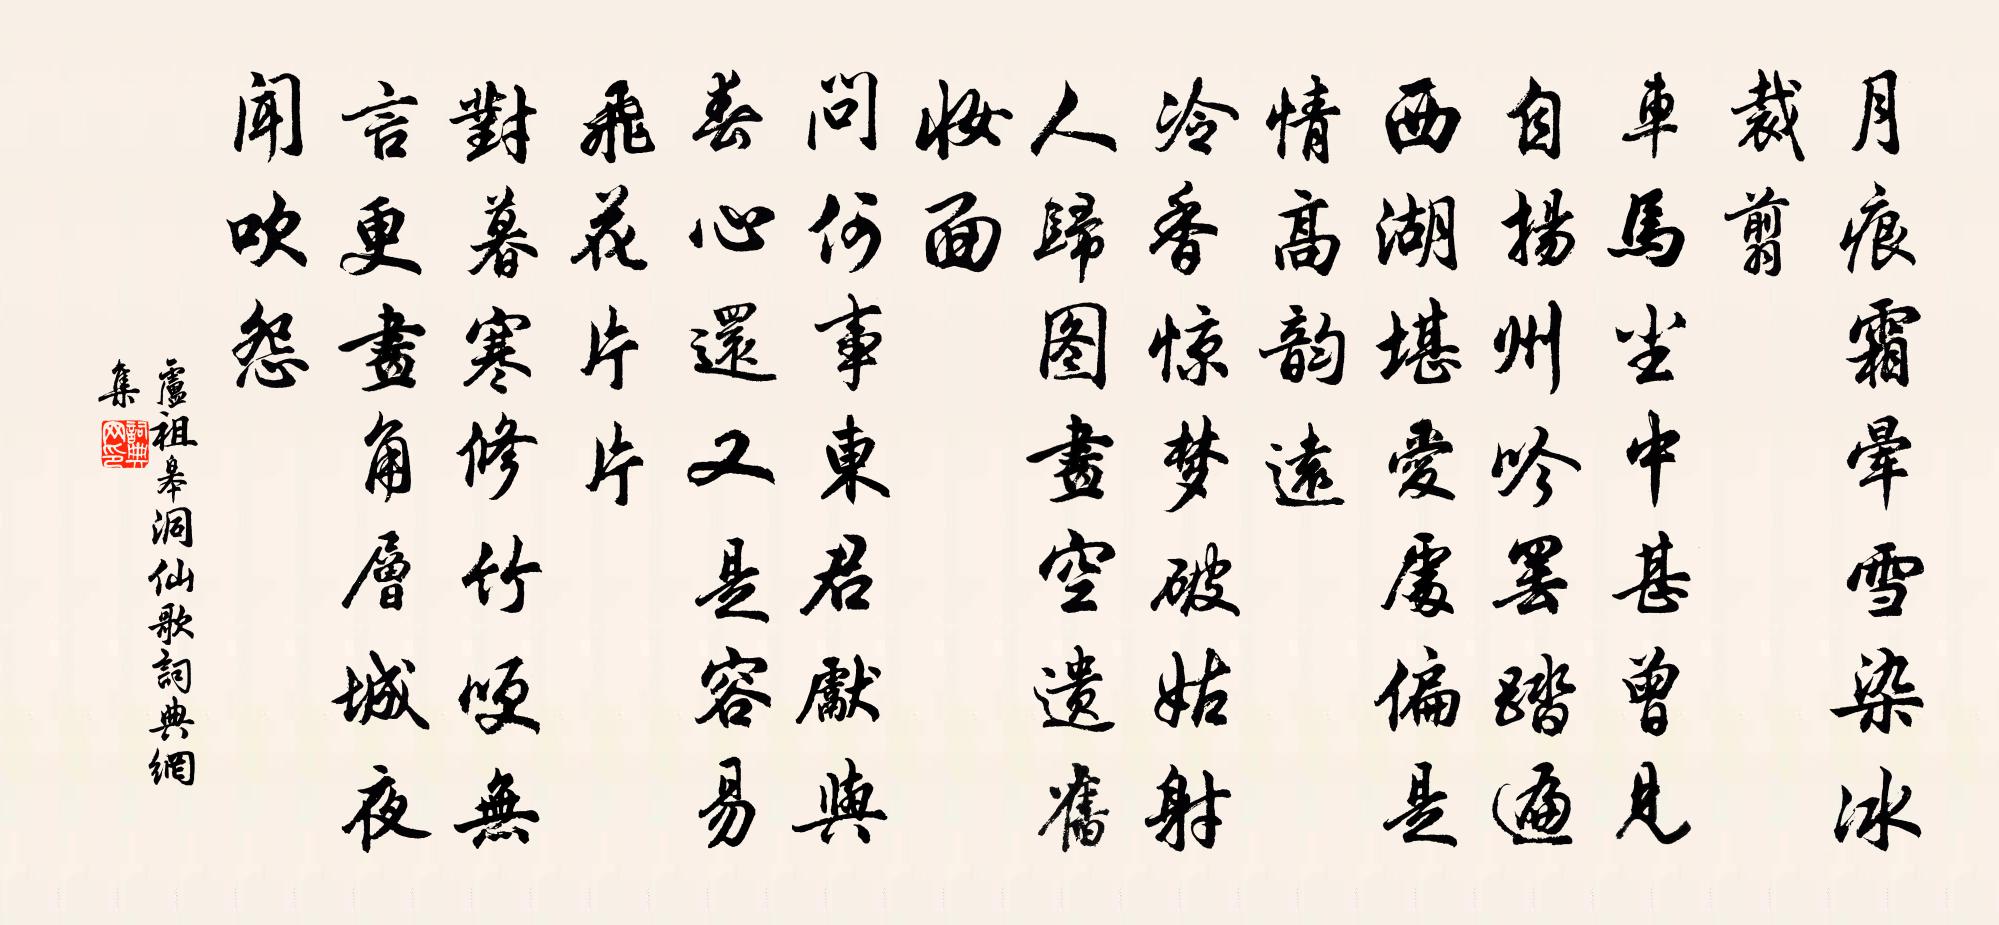 月痕霜暈雪染冰
裁翦
車馬尘中甚曾見
自揚州吟罷踏遍
西湖堪愛處偏是
情高韵遠
冷香惊梦破姑射
人歸图畫空遗舊
妆面
問何事東君獻與
春心還又是容易
飛花片片
對暮寒修竹哽無
言更畫角層城夜
闻吹怨
盧祖皋洞仙歌詞典網
集
詞典
网印